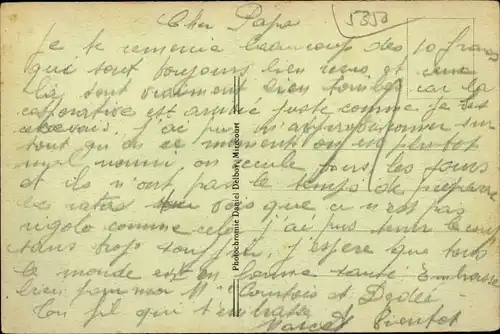 Cher Papa
5350
Je te remercie beaucoup des 10 francs
qui sont toujours bien reçus et ceux
là sont vraiment bien tombés car la
cooperative est arrivé juste comme je les
recevais, j'ai pu m'approvisionner sur
tout qu'en ce moment on est plutot
mal nourri on recule tous les jours
et ils n'ont pas le temps de preparer
le rata vois que ce n'est pas
rigolo comme cela j'ai pu tenir le coup
sans trop souffrir, j'espere que tous
le monde est en bonne santé Embrasse
bien pour moi Courtois et Dédée
Ton fil qui t'embrasse
Marcel bientot
Photochromie Daniel Delboy, Mirecourt